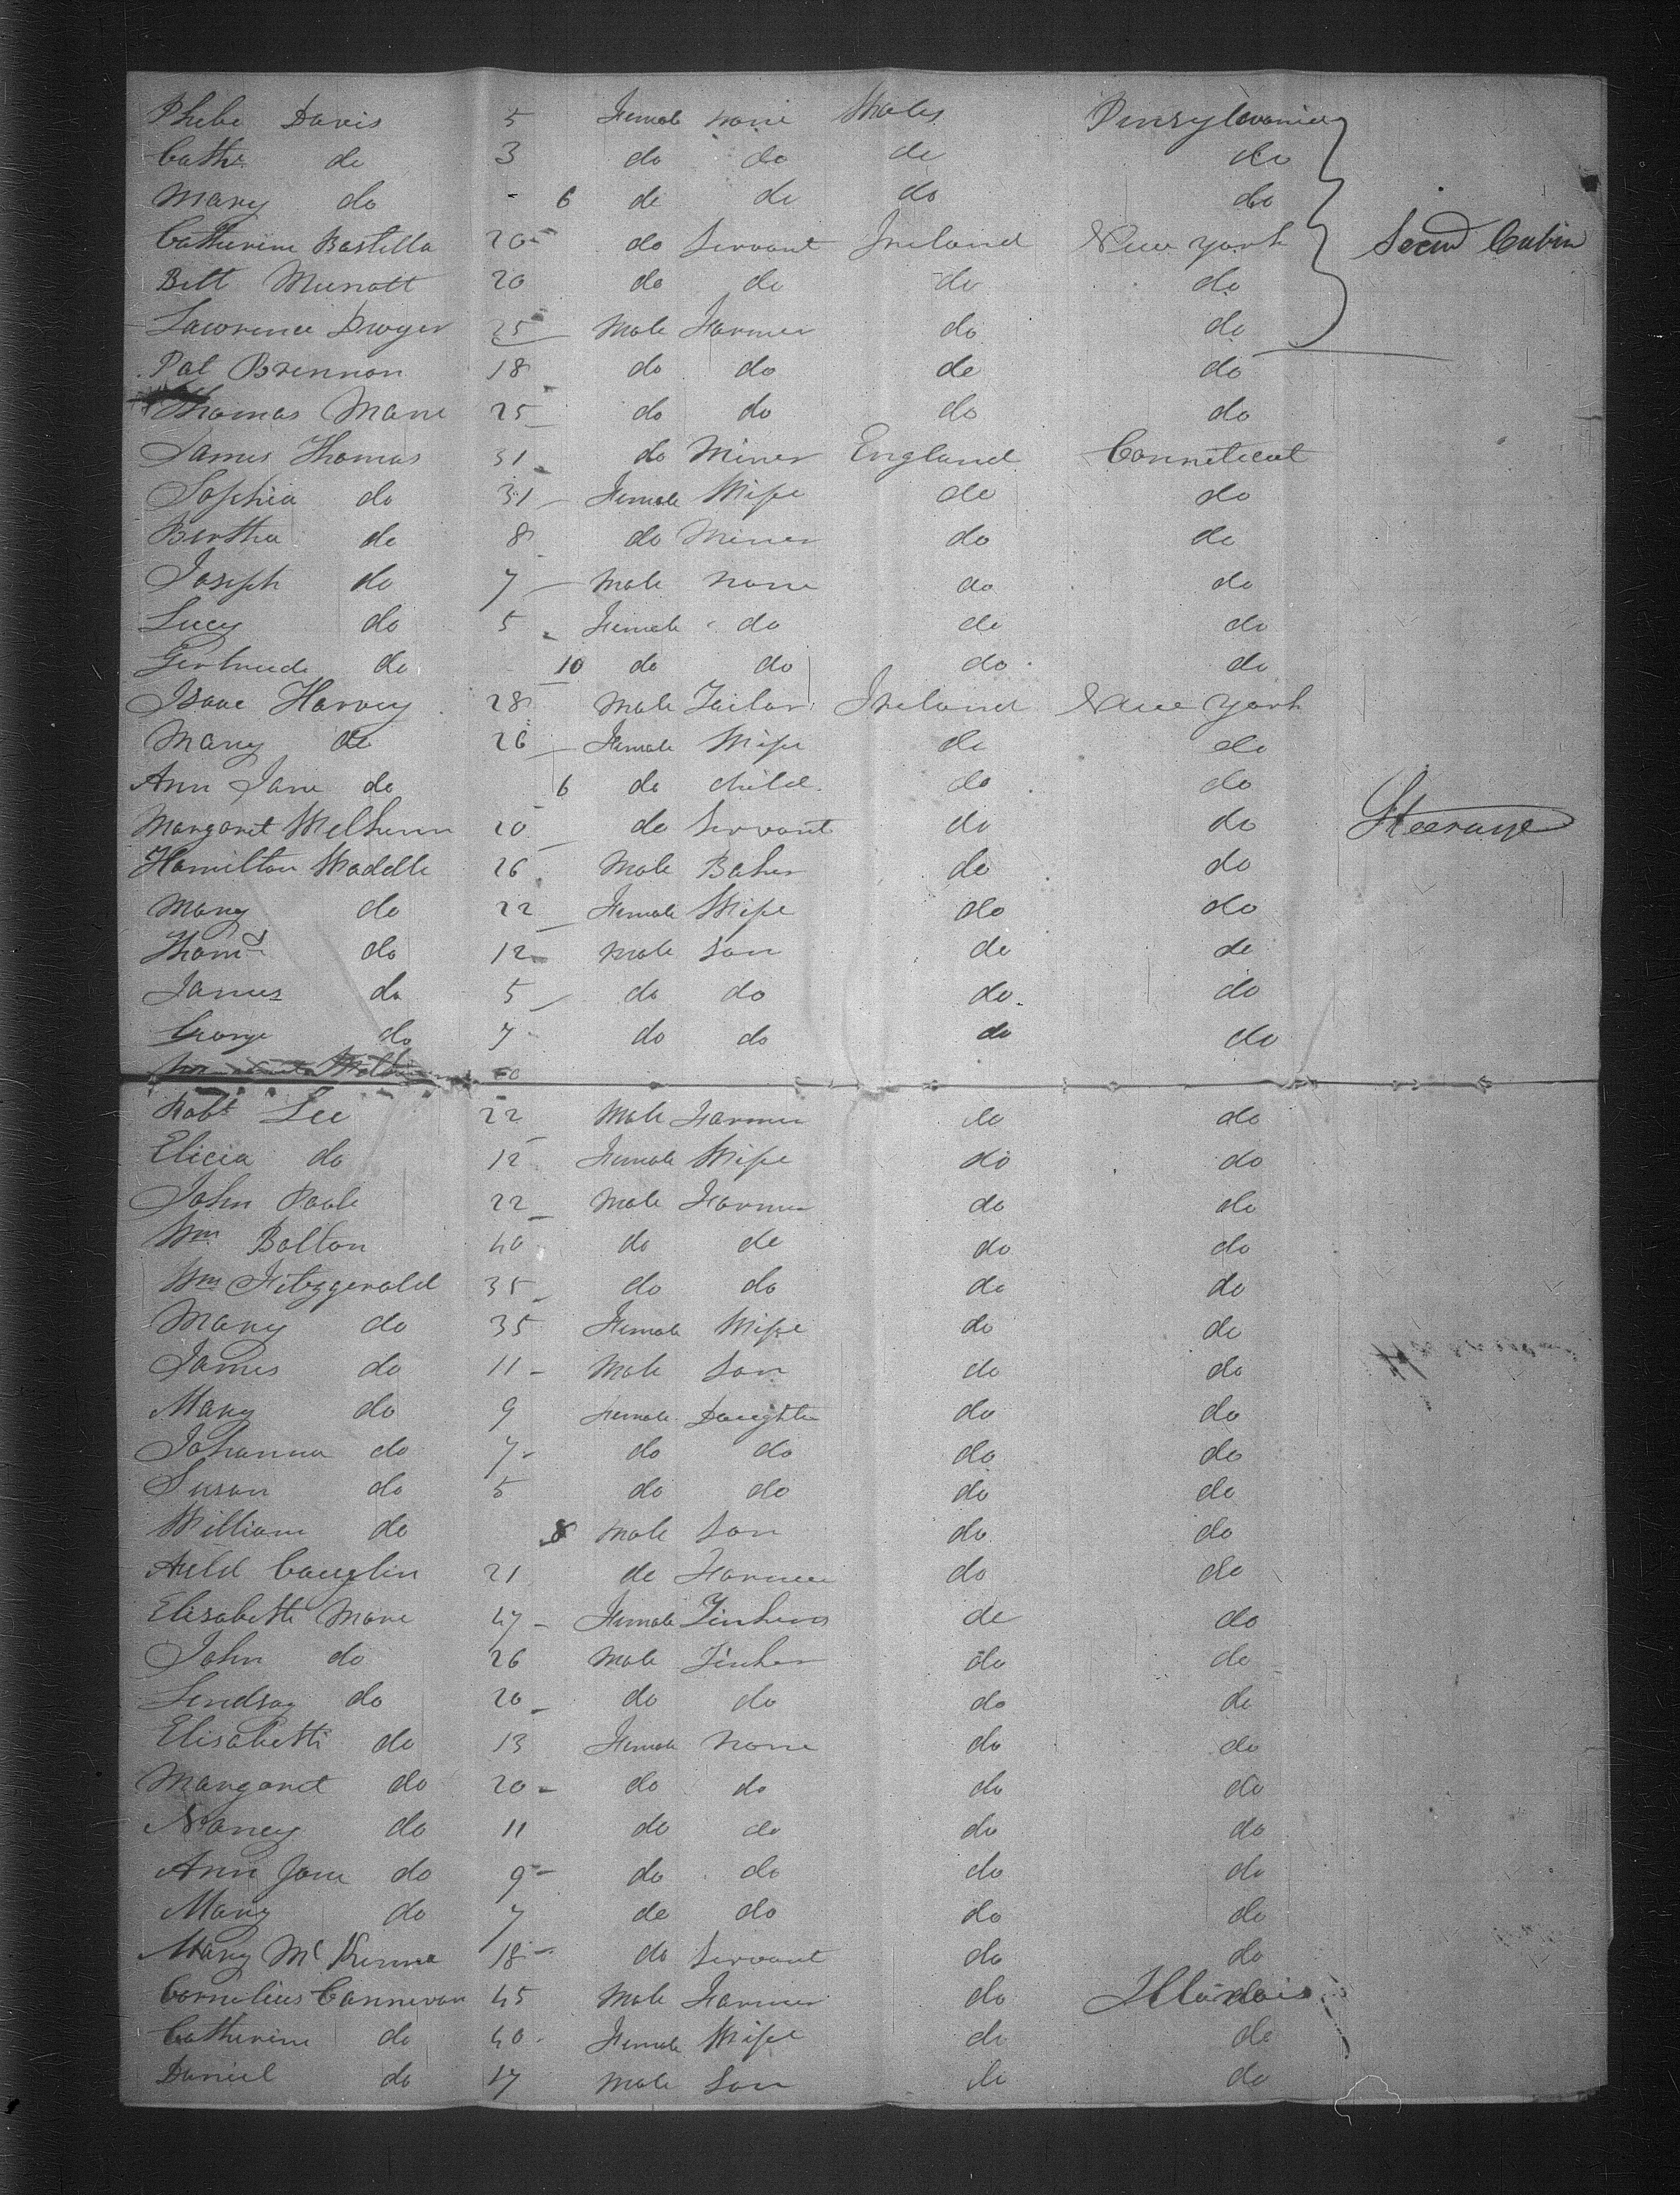 Phebe Davis 5 Female none Wales Pensylvania
Cathe do 3 do do do do
Mary do 6 do do do do
Catherine Bastella 20 do Servant Ireland New York Secund Cabin
Bett 20 do do do do
Lawrence Dwyer 25 Male Farmer do do
Pat Brennon 18 do do do do
Thomas Mane 25 do do do do
James Thomas 31 do Miner England Conneticut
Sophia do 31 Female Wife do do
Bertha do 8 do Miner do do
Joseph do 7 Male none do do
Lucy do 5 Female do do do
Gertrude do 10 do do do do
Isaac Harvey 28 Male Tailor Ireland New York
Mary do 26 Female Wife do do
Ann Jane do 6 do child do do
Margaret 20 do Servant do do Steerage
Hamilton Waddle 26 Male Baker do do
Mary do 22 Female Wife do do
Thoms do 12 Male Son do do
James do 5 do do do do
George do 7 do do do do
Robt Lee 22 Male Farmer do do
Elicia do 12 Female Wife do do
John Poole 22 Male Farmer do do
Wm Bolton 40 do do do do
Wm Fitzggerald 35 do do do do
Mary do 35 Female Wife do do
James do 11 Male Son do do
Mary do 9 Female Daughter do do
Johanna do 7 do do do do
Susan do 5 do do do do
William do 8 Male Son do do
Caughlin 21 do Farmer do do
Elisabeth Mare 47 Female do do
John do 26 Male Tinker do do
Lindsay do 20 do do do do
Elisabeth do 13 Female None do do
Margaret do 20 do do do do
Nancy do 11 do do do do
Ann Jane do 9 do do do do
Mary do 7 do do do do
Mary McKenna 18 do Servant do do
Cornelius Cannevan 45 Male Farmer do Illinois
Catherine do 40 Female Wife do do
Daniel do 17 Male Son do do